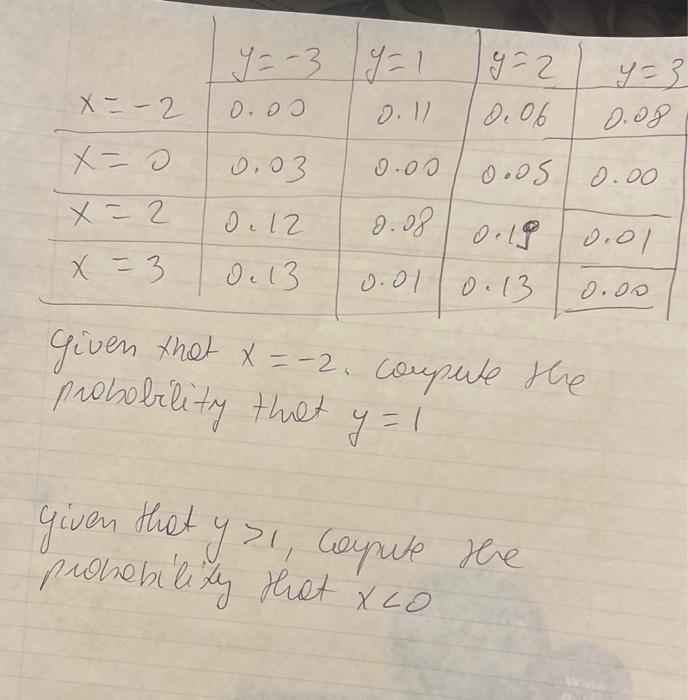 y=-3 y=1 y=2 y=3
x=-2 0.00 0.11 0.06 0.08
x=0 0.03 0.00 0.05 0.00
x=2 0.12 0.08 0.19 0.01
x=3 0.13 0.01 0.13 0.00
given that x=-2. compute the
probability that y=1
given that y>1, compute the
probability that x<0